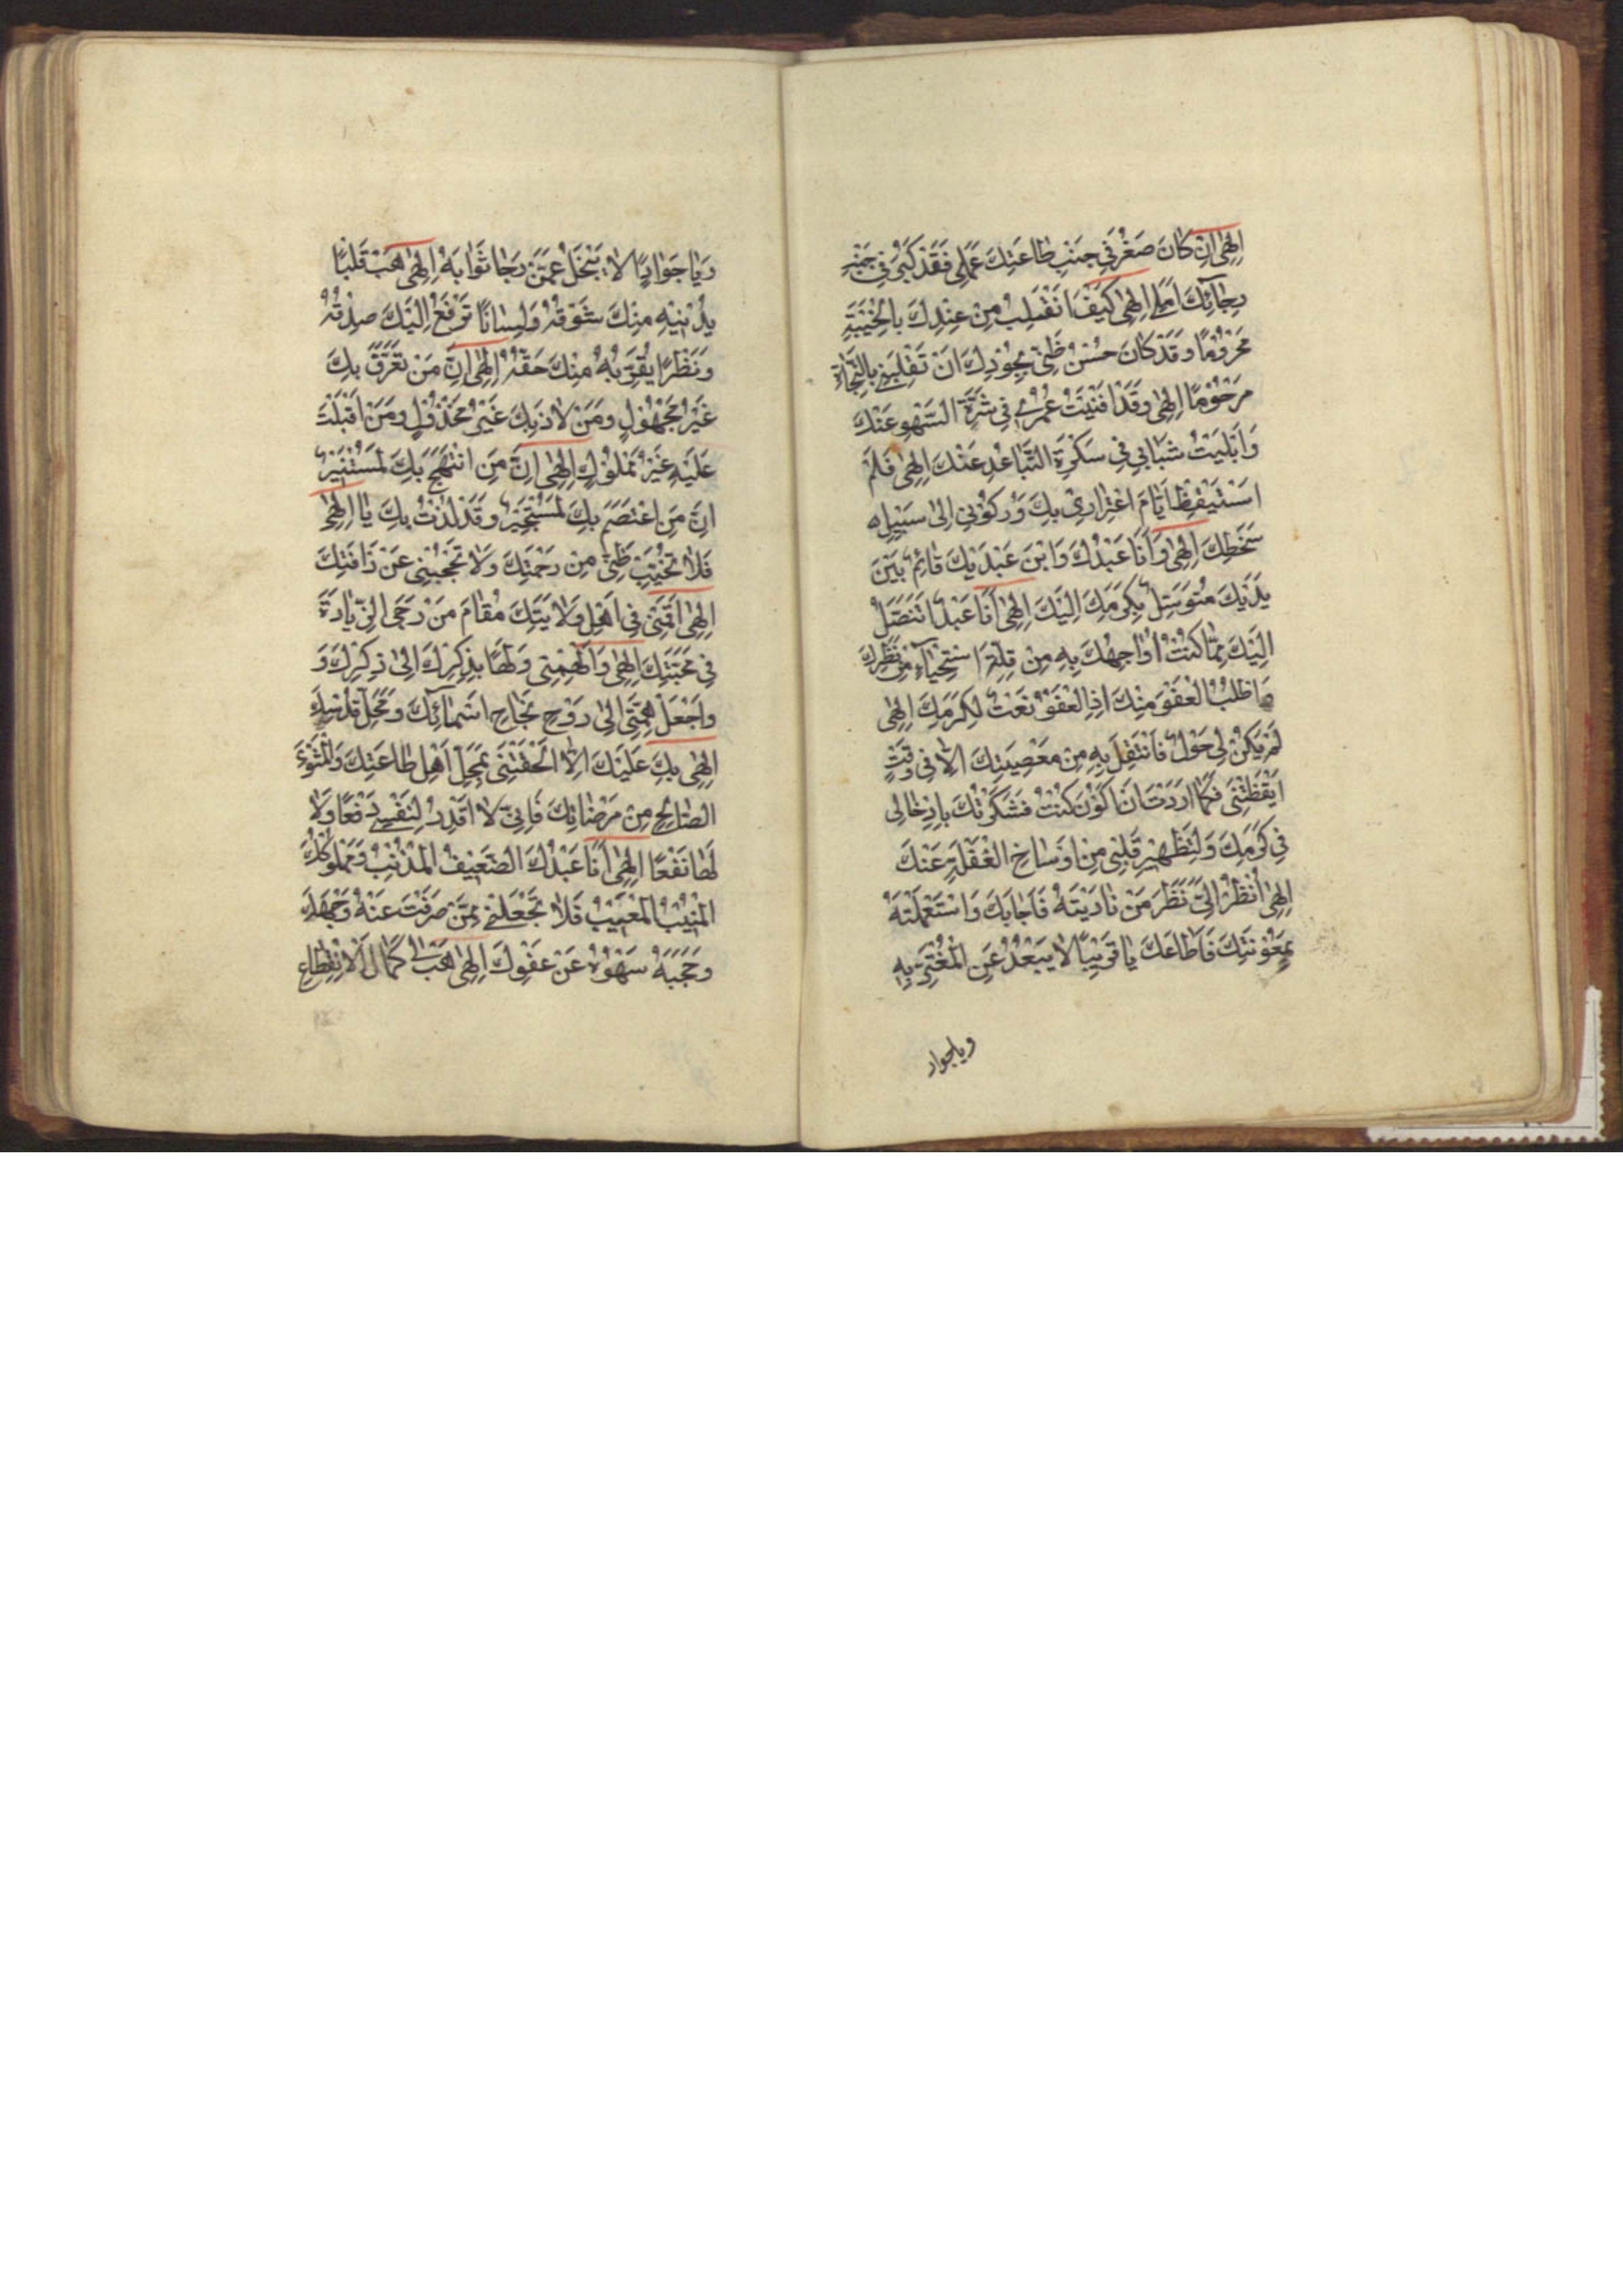 اِلٰهِى اِنْ كَانَ صَغُرَ فِي جَنْبِ طَاعَتِكَ عَمَلِى فَقَدْ كَبُرَ فِي جَنْبِ
رجَائِكَ اَمَلِى اِلٰهِى كَيْفَ اَنْقَلِبُ مِنْ عِنْدِكَ بِالْخَيْبَةِ
مَحْرُومًا وَقَدْ كَانَ حُسْنُ ظَنِّى بِجُوْدِكَ اَنْ تَقْلِبَنِى بِالنَّجَاةِ
مَرْحُوْمًا اِلٰهِى وَقَدْ اَفْنَيْتُ عُمْرِى فِى شَرَّةِ السَّهْوِ عَنْكَ
وَاَبْلَيْتُ شَبَابِى فِى سَكْرَةِ التَّبَاعُدِ عَنْكَ اِلٰهِى فَلَمْ
اَسْتَيْقِظْ اَيَّامَ اغْتِرَارِى بِكَ وَرُكُوْنِى اِلٰى سَبِيْلِ
سَخَطِكَ اِلٰهِى وَاَنَا عَبْدُكَ وَابْنُ عَبْدَيْكَ قَائِمٌ بَيْنَ
يَدَيْكَ مُتَوَسِّلٌ بِكَرَمِكَ اِلَيْكَ اِلٰهِى اَنَا عَبْدٌ اَتَنَصَّلُ
اِلَيْكَ مِمَّا كُنْتُ اُوَاجِهُكَ بِهِ مِنْ قِلَّةِ اسْتِحْيَآءِ مِنْ نَظَرِكَ
وَاَطْلُبُ الْعَفْوَ مِنْكَ اِذِ الْعَفْوُ نَعْتٌ لِكَرَمِكَ اِلٰهِى
لَمْ يَكُنْ لِى حَوْلٌ فَاَنْتَقِلَ بِهِ مِنْ مَعْصِيَتِكَ اِلاَّ فِى وَقْتٍ
اَيْقَظْتَنِى فَكَمَا اَرَدْتَ اَنْ اَكُوْنَ كُنْتُ فَشَكَرْتُكَ بِاِدْخَالِى
فِى كَرَمِكَ وَلِتَطْهِيْرِ قَلْبِى مِنْ اَوْسَاخِ الْغَفْلَةِ عَنْكَ
اِلٰهِى اُنْظُرْ اِلَىَّ نَظَرَ مَنْ نَادَيْتَهُ فَاَجَابَكَ وَاسْتَعْمَلْتَهُ
بِمَعُوْنَتِكَ فَاَطَاعَكَ يَا قَرِيْبًا لاَ يَبْعُدُ عَنِ الْمُغْتَرِّ بِهِ
وياجواد
وَيَا جَوَادًا لاَ يَبْخَلُ عَمَّنْ رَجَا ثَوَابَهُ اِلٰهِى هَبْ قَلْبًا
يُدْنِيْهِ مِنْكَ شَوْقُهُ وَلِسَانًا تَرْفَعُ اِلَيْكَ صِدْقُهُ
وَنَظَرًا يُقَرِّبُهُ مِنْكَ حَقُّهُ اِلٰهِى اِنَّ مَنْ تَعَرَّفَ بِكَ
غَيْرُ مَجْهُوْلٍ وَمَنْ لاَذَ بِكَ غَيْرُ مَخْذُوْلٍ وَمَنْ اَقْبَلْتَ
عَلَيْهِ غَيْرُ مَمْلُوْلٍ اِلٰهِى اِنَّ مَنِ انْتَهَجَ بِكَ لَمُسْتَنِيْرٌ
اِنَّ مَنِ اعْتَصَمَ بِكَ لَمُسْتَجِيْرٌ وَقَدْ لُذْتُ بِكَ يَا اِلٰهِى
فَلاَ تُخَيِّبْ ظَنِّى مِنْ رَحْمَتِكَ وَلاَ تَحْجُبْنِى عَنْ رَأفَتِكَ
اِلٰهِى اَقِمْنِى فِى اَهْلِ وَلاَيَتِكَ مُقَامَ مَنْ رَجَى الزِّيَادَةَ
فِى مَحَبَّتِكَ اِلٰهِى وَاَلْهِمْنِى وَلَهًا بِذِكْرِكَ اِلٰى ذِكْرِكَ وَ
وَاجْعَلْ هِمَّتِى اِلٰى رَوْحِ نَجَاحِ اَسْمَائِكَ وَمَحَلِّ قُدْسِكَ
اِلٰهِى بِكَ عَلَيْكَ اِلاَّ اَلْحَقْتَنِى بِمَحَلِّ اَهْلِ طَاعَتِكَ وَالْمَثْوَى
الصَّالِحِ مِنْ مَرْضَاتِكَ فَاِنِّى لاَ اَقْدِرُ لِنَفْسِى دَفْعًا وَلاَ
لَهَا نَفْعًا اِلٰهِى اَنَا عَبْدُكَ الضَّعِيْفُ الْمُذْنِبُ وَمَمْلُوكُكَ
الْمُنِيْبُ الْمُعَيَّبُ فَلاَ تَجْعَلْنِى مِمَّنْ صَرَفْتَ عَنْهُ وَجْهَكَ
وَحَجَبَهُ سَهْوُهُ عَنْ عَفْوِكَ اِلٰهِى هَبْ لِى كَمَالَ الْاِنْقِطَاعِ